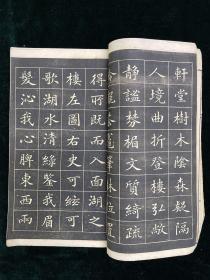 軒堂樹木陰森疑隔
人境曲折登樓弘敞
靜謐棼楣文質綺疏
得所既而入面湖之
樓左圖右史可絃可
歌湖水清綠鑒我眉
髮沁我心脾東西兩